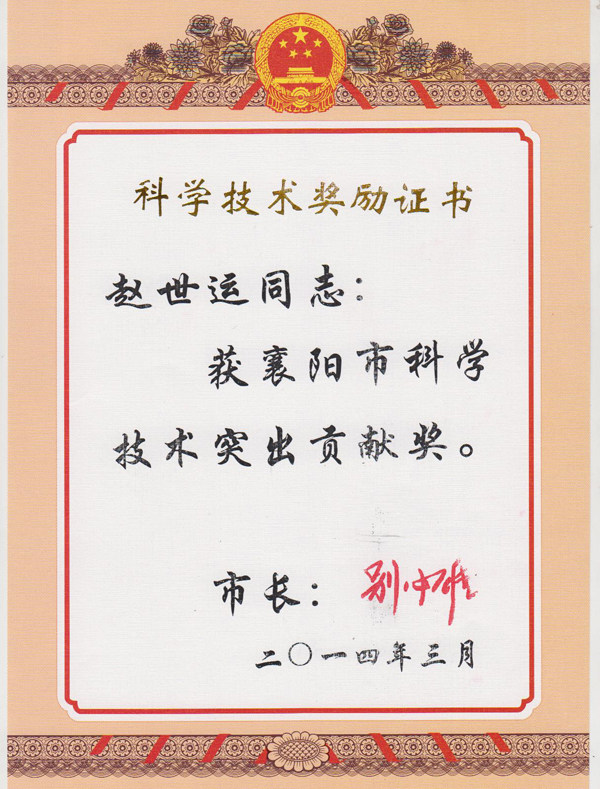 科学技术奖励证书
赵世运同志:
获襄阳市科学
技术突出贡献奖。
市长: 别必雄
二〇一四年三月